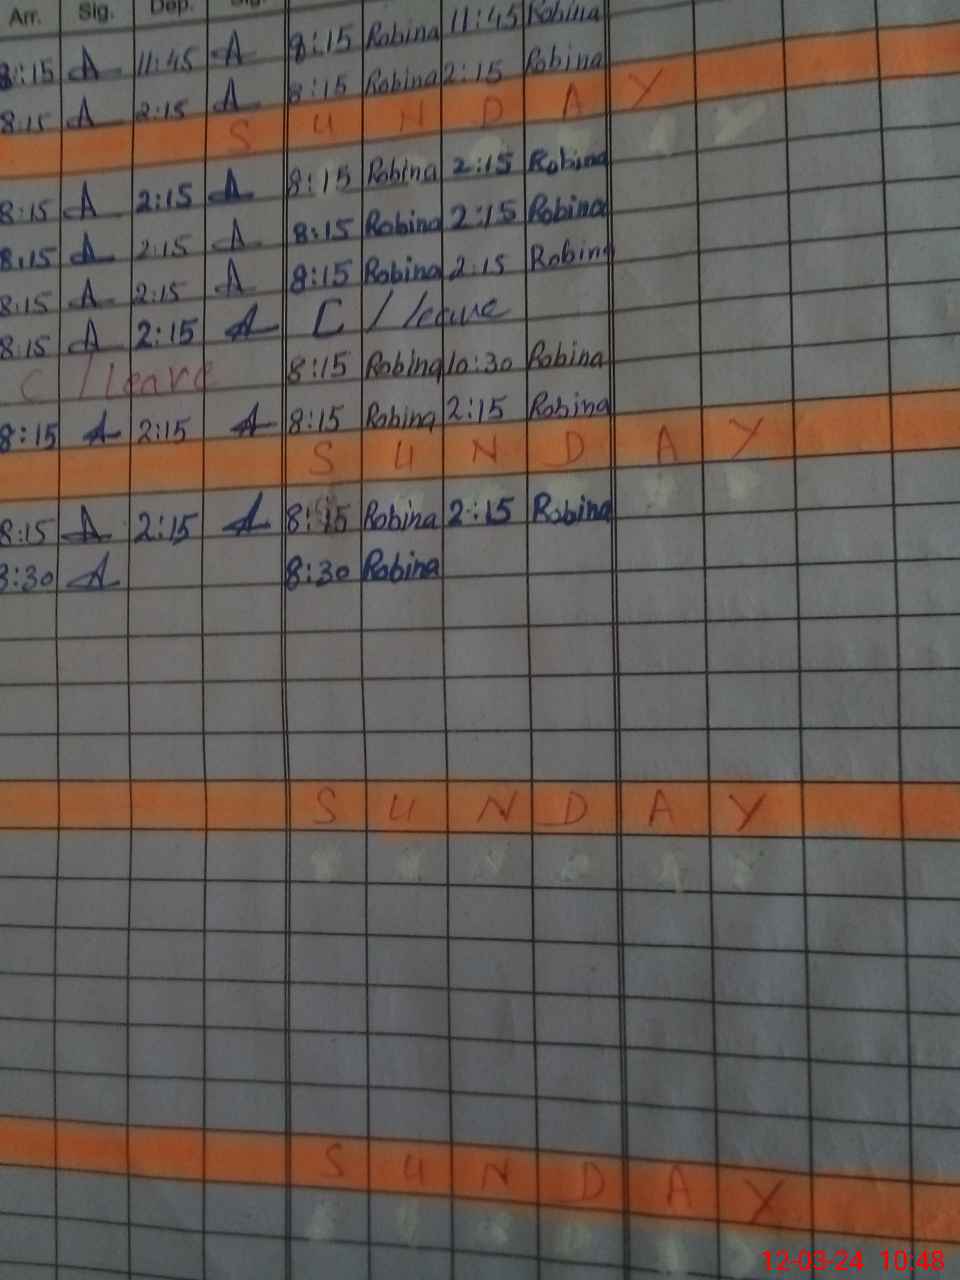 Arr. Sig. Dep. Sig.
8:15 A 11:45 A 8:15 Robina 11:45 Robina
8:15 A 2:15 A 8:15 Robina 2:15 Robina
S U N D A Y
8:15 A 2:15 A 8:15 Robina 2:15 Robina
8:15 A 2:15 A 8:15 Robina 2:15 Robina
8:15 A 2:15 A 8:15 Robina 2:15 Robina
8:15 A 2:15 A C / leave
C / leave 8:15 Robina 10:30 Robina
8:15 A 2:15 A 8:15 Robina 2:15 Robina
S U N D A Y
8:15 A 2:15 A 8:15 Robina 2:15 Robina
8:30 A 8:30 Robina
S U N D A Y
S U N D A Y
12-03-24 10:48